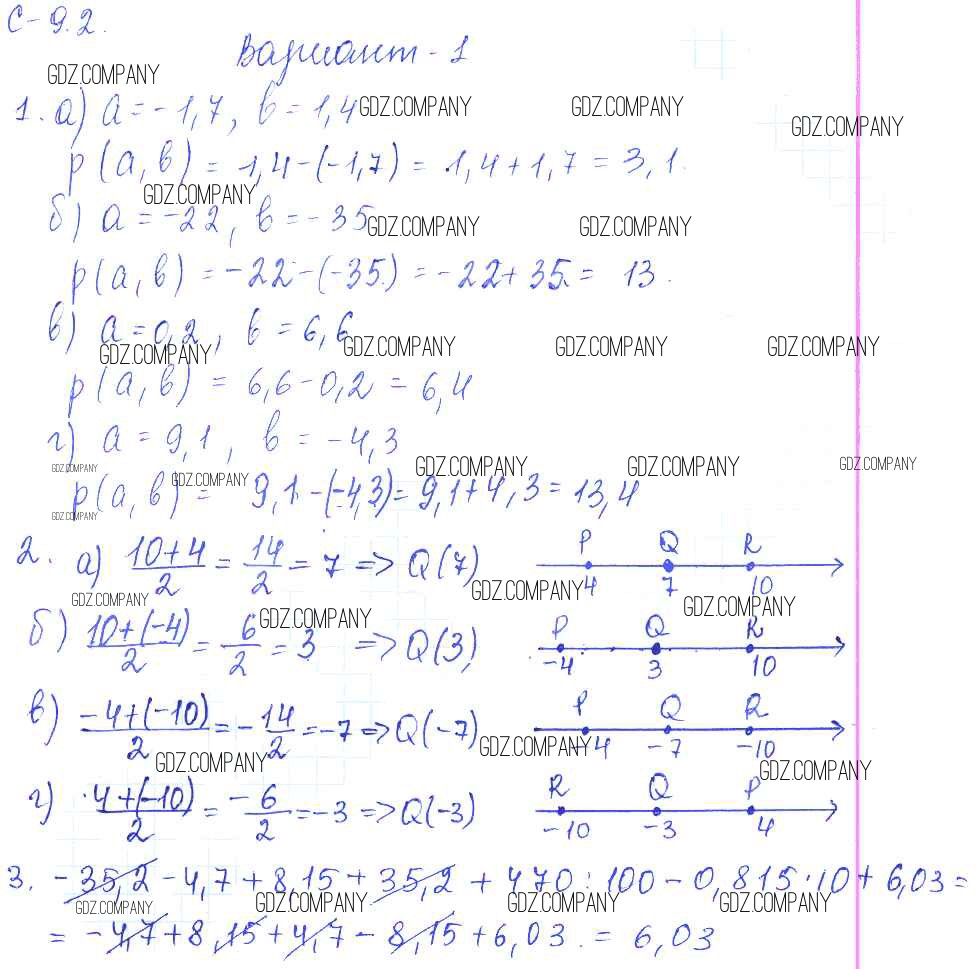 С-9.2.
Вариант-1
GDZ.COMPANY
1. а) a = -1,7, b = 1,4 GDZ.COMPANY GDZ.COMPANY
GDZ.COMPANY
p(a,b) = 1,4-(-1,7) = 1,4+1,7 = 3,1.
GDZ.COMPANY
б) a = -22, b = -35 GDZ.COMPANY GDZ.COMPANY
p(a,b) = -22-(-35) = -22+35 = 13.
в) a = 0,2, b = 6,6
GDZ.COMPANY GDZ.COMPANY GDZ.COMPANY GDZ.COMPANY
p(a,b) = 6,6-0,2 = 6,4
г) a = 9,1, b = -4,3
GDZ.COMPANY GDZ.COMPANY GDZ.COMPANY GDZ.COMPANY GDZ.COMPANY
p(a,b) = 9,1-(-4,3) = 9,1+4,3 = 13,4
GDZ.COMPANY
2. а) 10+4/2 = 14/2 = 7 => Q(7) P Q R
4 7 10
GDZ.COMPANY GDZ.COMPANY GDZ.COMPANY GDZ.COMPANY
б) 10+(-4)/2 = 6/2 = 3 => Q(3) P Q R
-4 3 10
в) -4+(-10)/2 = -14/2 = -7 => Q(-7) P Q R
-4 -7 -10
GDZ.COMPANY GDZ.COMPANY GDZ.COMPANY
г) 4+(-10)/2 = -6/2 = -3 => Q(-3) R Q P
-10 -3 4
3. -35,2 - 4,7 + 8,15 + 35,2 + 470 : 100 - 0,815 · 10 + 6,03 =
GDZ.COMPANY GDZ.COMPANY GDZ.COMPANY GDZ.COMPANY
= -4,7 + 8,15 + 4,7 - 8,15 + 6,03 = 6,03